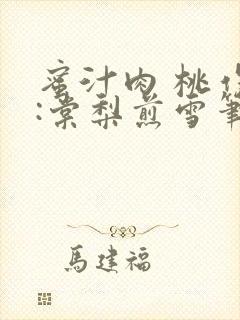 蜜汁肉桃作
:棠梨煎雪筆
馬建福